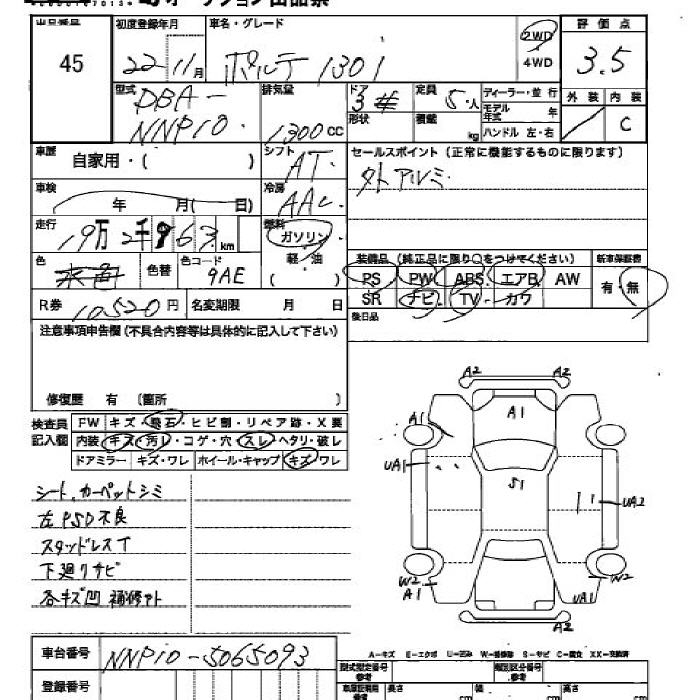 出品番号 初度登録年月 車名・グレード 評価点
45 22 11月 ポルテ 130i 2WD 4WD 3.5
型式 DBA-NNP10. 排気量 1300cc ドア 3 形状 定員 5.人 積載 kg ディーラー・並行 モデル年式 年 ハンドル 左・右 外装 内装 C
車歴 自家用・( ) シフト AT. セールスポイント(正常に機能するものに限ります)
車検 年 月( 日) 冷房 AAC 外アルミ
走行 19万2千963km 燃料 ガソリン・軽・油 ( )
色 色替 色コード 9AE 装備品(純正品に限り○をつけてください) 新車保証書
PS PW ABS エアB AW 有・無
R券 10520円 名変期限 月 日 SR ナビ TV カワ
注意事項申告欄(不具合内容等は具体的に記入して下さい) 後日品
修復歴 有 (箇所 )
検査員記入欄 FW キズ・飛石・ヒビ割・リペア跡・X要
内装 キズ・汚レ・コゲ・穴・スレ・ヘタリ・破レ
ドアミラー キズ・ワレ ホイール・キャップ キズ・ワレ
シート、カーペットシミ
左PSD不良
スタッドレスT
下廻りサビ
各キズ凹 補修アト
A2 A2
A1
A1
UA1
S1
UA2
W2 A1
W2
UA1
A2
A-キズ E-エクボ U-凹み W-補修跡 S-サビ C-腐食 XX-交換済
車台番号 NNP10-5065093
型式指定番号 参考 類別区分番号 参考
登録番号 長さ cm 幅 cm 高さ cm